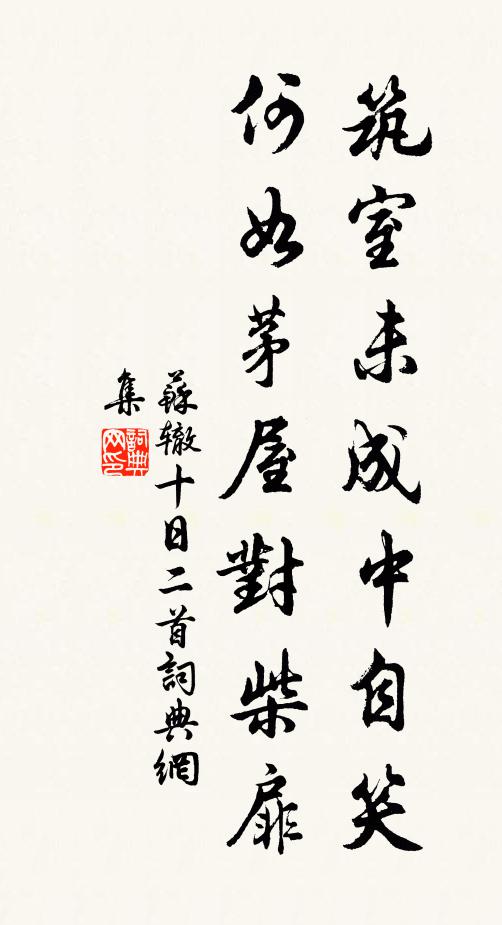 筑室未成中自笑
何如茅屋對柴扉
蘇辙十日二首詞典網
集
詞典网印